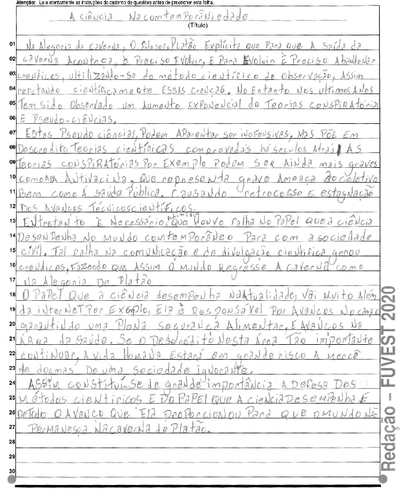 Atenção: Leia atentamente as instruções do caderno de questões antes de preencher esta folha.
A ciência Nacomtemporâniedade
(Título)
01 Na Alegoria da caverna, O filosofo Platão Explicita que Para que A saída da
02 caverna Aconteça, é Preciso Evoluir, E Para Evoluir é Preciso Abandonar
03 crendices, Utilizando-se do método científico de Observação, Assim
04 refutando cientificamente Essas crenças. No Entanto nos ultimos Anos
05 Tem sido Observado um Aumento Exponencial de Teorias conspiratórias
06 E Pseudo-ciências.
07 Estas Pseudo ciências, Podem Aparentar ser inofensivas, mas Põe Em
08 Descredito Teorias científicas comprovadas há séculos atrás, As
09 Teorias conspiratórias Por Exemplo Podem ser Ainda mais graves
10 como a Antivacina, que representa grave Ameaça ao coletivo
11 Bem como A saúde Pública, causando retrocesso e estagnação
12 Dos Avanços Técnicoscientificos.
13 Entretanto é Necessário, que houve falha no Papel que a ciência
14 Desempenha no mundo comtemporâneo Para com a sociedade
15 civil. Tal falha na comunicação e de divulgação científica gerou
16 crendices, fazendo que Assim O mundo Regresse A caverna como
17 na Alegoria de Platão
18 O Papel que A ciência desempenha naAtualidade, vai Muito Além
19 da internet Por Exeplo, Ela é Responsável Por Avanços No campo
20 garantindo uma Plena segurança Alimentar, E Avanços na
21 Área da Saúde. Se o Descredito Nesta Área Tão importante
22 continuar, A vida Humana Estará em grande risco A Mercê
23 de dogmas de uma sociedade ignorante.
24 Assim constitui-se de grande importância a Defasa Dos
25 Métodos científicos E do Papel que A ciencia Desempenha E
26 deTodo O Avanço que Ela Proporcionou Para que o mundo não
27 Permaneça Na caverna de Platão.
28
29
30
Redação – FUVEST 2020